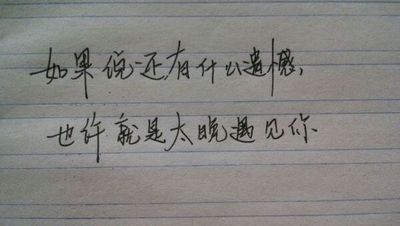 如果说还有什么遗憾，
也许就是太晚遇见你